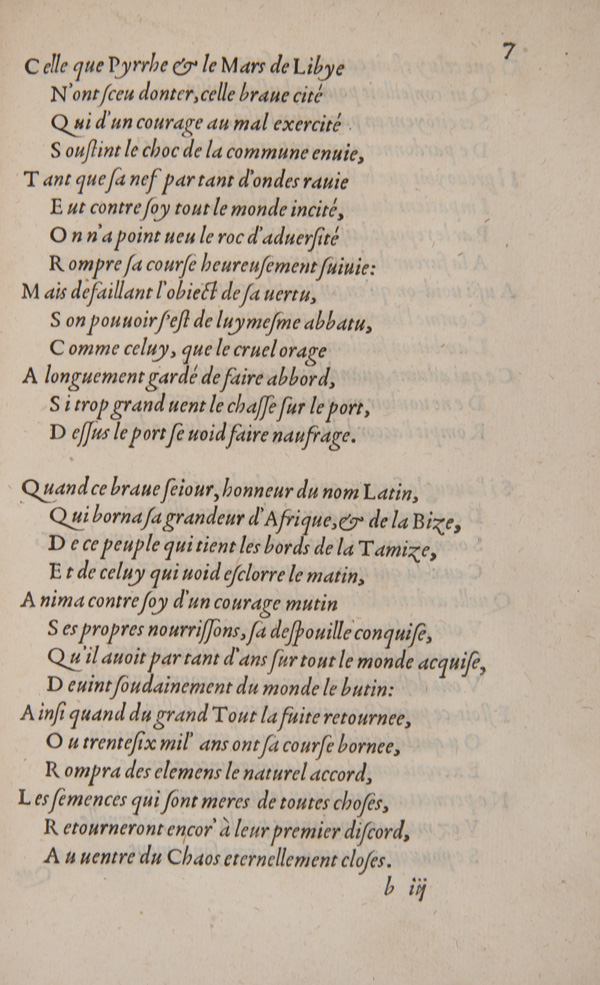 7
Celle que Pyrrhe & le Mars de Libye
N'ont ſceu donter, celle braue cité
Qui d'un courage au mal exercité
Souſtint le choc de la commune enuie,
Tant que ſa nef par tant d'ondes rauie
Eut contre ſoy tout le monde incité,
On n'a point ueu le roc d'aduerſité
Rompre ſa courſe heureuſement ſuiuie:
Mais defaillant l'obiect de ſa uertu,
Son pouuoir ſ'eſt de luymeſme abbatu,
Comme celuy, que le cruel orage
A longuement gardé de faire abbord,
Si trop grand uent le chaſſe ſur le port,
Deſſus le port ſe uoid faire naufrage.
Quand ce braue ſeiour, honneur du nom Latin,
Qui borna ſa grandeur d'Afrique, & de la Bize,
De ce peuple qui tient les bords de la Tamize,
Et de celuy qui uoid eſclorre le matin,
Anima contre ſoy d'un courage mutin
Ses propres nourriſſons, ſa deſpouille conquiſe,
Qu'il auoit par tant d'ans ſur tout le monde acquiſe,
Deuint ſoudainement du monde le butin:
Ainſi quand du grand Tout la fuite retournee,
Ou trenteſix mil' ans ont ſa courſe bornee,
Rompra des elemens le naturel accord,
Les ſemences qui ſont meres de toutes choſes,
Retourneront encor' à leur premier diſcord,
Au uentre du Chaos eternellement cloſes.
b iij